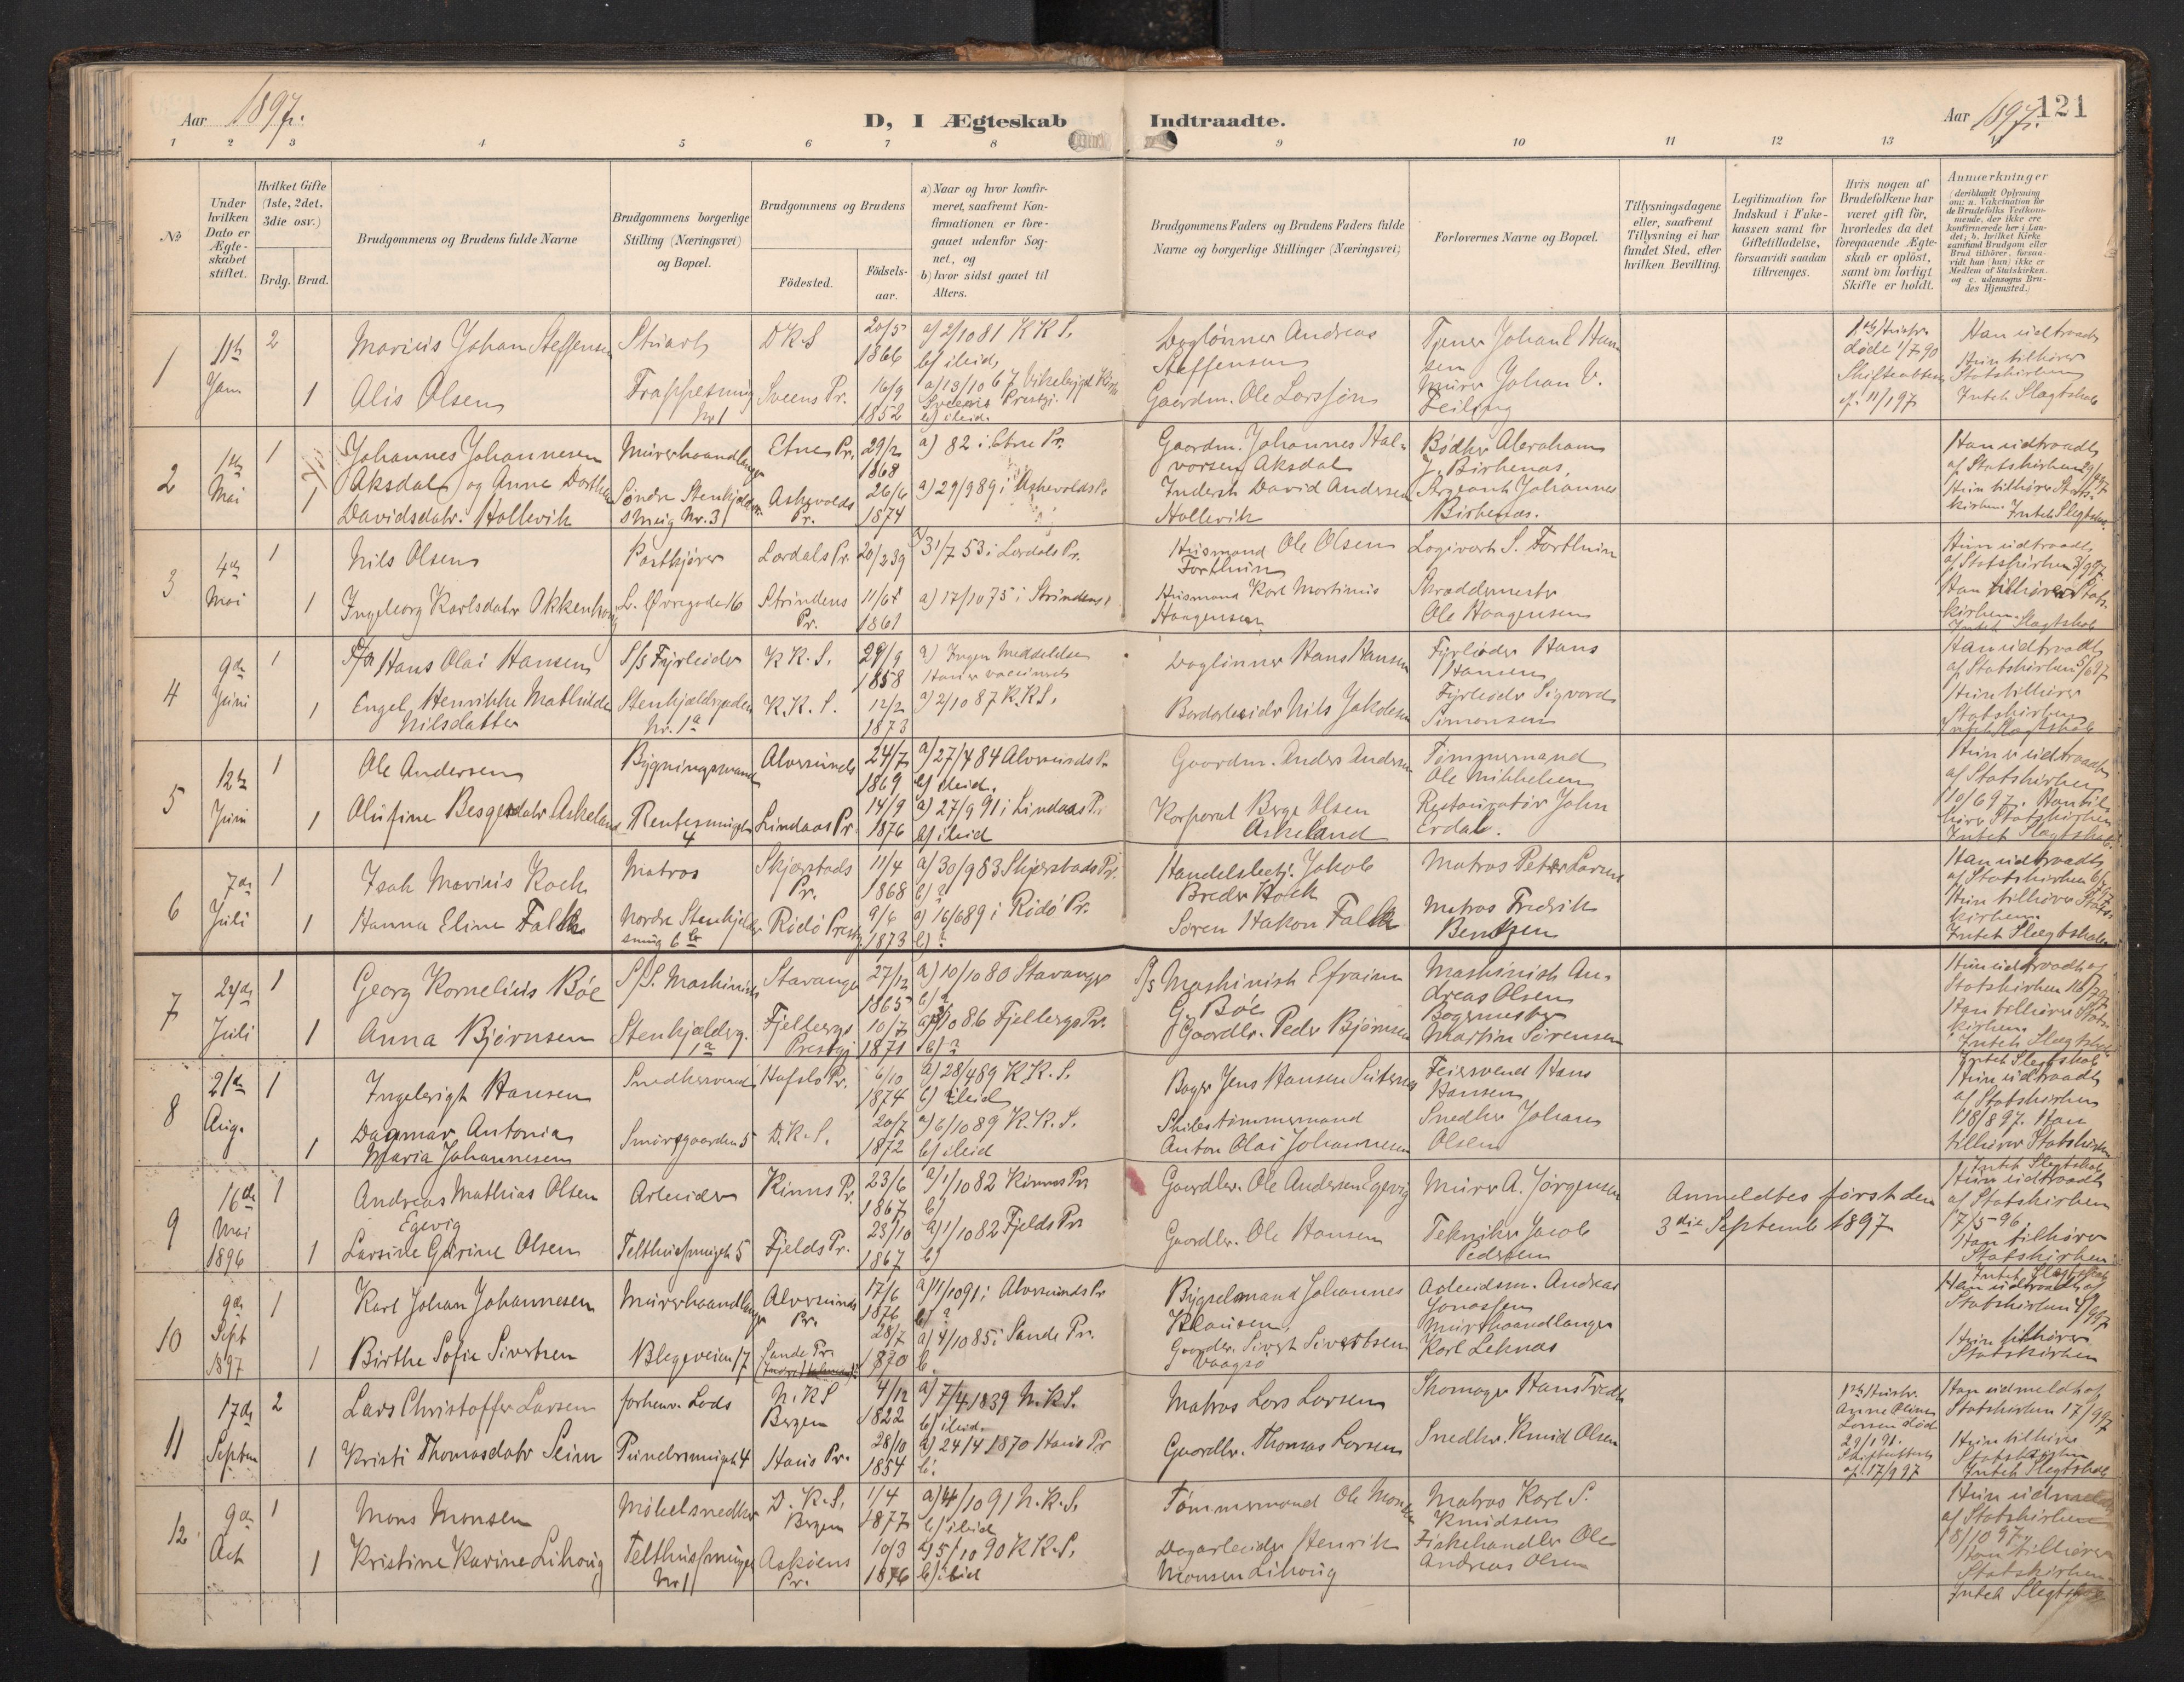 Aar 1897.
D, I Ægteskab Indtraadte.
Aar 1897. 121
1 2 3 4 5 6 7 8 9 10 11 12 13 14
No
Under hvilken Dato er Ægteskabet stiftet.
Hvilket Gifte (1ste, 2det, 3die osv.)
Brdg. Brud.
Brudgommens og Brudens fulde Navne
Brudgommens borgerlige Stilling (Næringsvei) og Bopæl.
Brudgommens og Brudens
Födested.
Födsels-aar.
a) Naar og hvor konfirmeret, saafremt Konfirmationen er foregaaet udenfor Sognet, og
b) hvor sidst gaaet til Alters.
Brudgommens Faders og Brudens Faders fulde Navne og borgerlige Stillinger (Næringsvei)
Forlovernes Navne og Bopæl.
Tillysningsdagene eller, saafremt Tillysning ei har fundet Sted, efter hvilken Bevilling.
Legitimation for Indskud i Enkekassen samt for Giftetilladelse, forsaavidt saadan tiltrænges.
Hvis nogen af Brudefolkene har været gift för, hvorledes da det foregaaende Ægteskab er oplöst, samt om lovligt Skifte er holdt.
Anmærkninger
(deriblandt Oplysning om: a. Vakcination for de Brudefolks Vedkommende, der ikke ere konfirmerede her i Landet; b. hvilket Kirkesamfund Brudgom eller Brud tilhörer, forsaavidt han (hun) ikke er Medlem af Statskirken, og c. udensogns Brudes Hjemsted.)
1 11te Jan 2 Marius Johan Steffensen Stuart D K S 20/5 1866 a) 2/10 81 K K S. b) ibid.
Daglønner Andreas Steffensen Tjener Johan E Hansen
døde 1/7 90 Skifteattest af 11/1 97
Han udtraadt
Hun tilhører Statskirken
Intet Slagtskab
1 Alis Olsen Trappesmug No 1 Sveens Pr. 16/9 1852 a) 13/10 67 b) ibid.
Gaardm. Ole Larssøn Murer Johan V.
2 1ste Mai 1 Johannes Johannesen Aksdal og Anne Dorthea Davidsdatr. Hollevik
1 Murerhaandlanger Søndre Stenkjelder Smug Nr. 3
Etne Pr. 29/2 1868 a) 82 i Etne Pr.
Askevolds Pr. 26/6 1874 a) 29/9 89 i Askevolds Pr.
Gaardm. Johannes Halvorsen Aksdal Bødker Abraham J. Birkenæs.
Inderst David Andersen Hollevik Sergeant Johannes Birkenæs.
Han udtraadt af Statskirken 29/4 97
Hun tilhører Statskirken Intet Slegtskab.
3 4de Mai 1 Nils Olsen Postkjører Lærdals Pr. 20/2 39 a) 31/7 53 i Lærdals Pr.
Husmand Ole Olsen Forthun Logivert S. Forthun
1 Ingeborg Karlsdatr Akkenhaug L. Øvregade 16 Strindens Pr. 11/6 1861 a) 17/10 75 i Strindens
Husmand Karl Martinus Haagensen Skræddermester Ole Haagensen
Hun udtraadt af Statskirken
Han tilhører Statskirken.
Intet Slagtskab
4 9de Juni 1 Hans Olai Hansen S/S Fyrbøder K K. S. 29/9 1858 a) Ingen Meddelelse Han er vaccineret
Daglønner Hans Hansen Fyrbøder Hans Hansen
1 Engel Henrikke Mathilde Nilsdatter Stenkjeldergaden Nr. 1a K. K. S. 12/2 1873 a) 2/10 87 K. K S.
Bordarbeider Nils Jakobsen Fyrbøder Sigvard Simonsen
Han udtraadt af Statskirken 5/6 97
Hun tilhører Statskirken
Intet Slagtskab
5 12te Juni 1 Ole Andersen Bygningsmand Alversunds 24/7 1869 a) 27/4 84 Alversunds Pr b) ibid.
Gaardm. Anders Andersen Tømmermand Ole Mikkelsen
1 Alufine Bergesdatr Askeland Rentesmuget 4 Lindaas Pr 14/9 1876 a) 27/9 91 i Lindaas Pr. b) ibid
Korporal Berge Olsen Askeland Restauratør John Erdal.
Hun er udtraadt af Statskirken 10/6 97. Han tilhører Statskirken
Intet Slagtskab
6 7de Juli 1 Isak Marius Koch Matros Skjerstads Pr. 11/4 1868 a) 30/9 83 Skjerstads Pr. b) ?
Handelsbetj. Jakob Breder Koch Matros Peter Larsen
1 Hanna Eline Falck Nordre Stenkjelder smug 6 b Rødø Prestgj 9/6 1873 a) 16/6 89 i Rødø Pr. b) ?
Søren Hakon Falck Matros Fredrik Bentzen
Han udtraadt af Statskirken
Hun tilhører Statskirken.
Intet Slægtskab
7 24de Juli 1 Georg Kornelius Bøe S/S. Maskinist Stavanger 27/12 1865 a) 10/10 80 Stavanger b) ?
S/S Maskinist Efraim G. Bøe Maskinist Andreas Olsen
1 Anna Bjørnsen Stenkjælderg. 1a Fjelbergs Prestgj 10/7 1871 a) 3/10 86 Fjelbergs Pr. b) ?
Gaardbr. Peder Bjørnsen Bagermester Martin Sørensen
Hun udtraadt af Statskirken 16/7 97
Han tilhører Statskirken.
Intet Slagtskab
8 21de Aug. 1 Ingebrigt Hansen Snedkersvend Hafslo Pr. 6/10 1874 a) 28/4 89 K. K. S. b) ibid
Bager Jens Hansen Feiersvend Hans Hansen
1 Dagmar Antonia Maria Johannesen Smørsgaarden 5 D. K. S. 20/7 1872 a) 6/10 89 K. K. S. b) ibid
Skibstømmermand Anton Olai Johannesen Snedker Johan Olsen
Intet Slegtskab
Hun udtraadt af Statskirken 18/8 97. Han tilhører Statskirken
Intet Slegtskab
9 16de Mai 1896 1 Andreas Mathias Olsen Egevig Arbeider Kinns Pr. 23/6 1867 a) 1/10 82 Kinns Pr b)
Gaardbr. Ole Andersen Egevig Murer A. Jørgensen
1 Larsine Gurine Olsen Telthussmuget 5 Fjelds Pr. 23/10 1867 a) 1/10 82 Fjelds Pr b)
Gaardbr. Ole Hansen Tekniker Jacob Pedersen
Anmeldtes først den 3die September 1897
Hun udtraadt af Statskirken 7/5 96
Han tilhører Statskirken
Intet Slegtskab
10 9de Sept 1897 1 Karl Johan Johannesen Murerhaandlanger Alversunds Pr. 17/6 1876 a) 11/10 91 i Alversunds Pr b) ?
Bygselmand Johannes Klausen. Arbeidsm. Andreas Jonassen
1 Birthe Sofie Sivertsen Blegeveien 17 Sande Pr. 28/7 1870 a) 4/10 85 i Sande Pr. b.
Gaardbr. Sivert Sivertsen Vaagsø Murerhaandlanger Karl Leknæs
Han udtraadt af Statskirken 4/9 97
Hun tilhører Statskirken
11 17de Septem 2 Lars Christoffer Larsen forhenv. Lods N. K S Bergen 4/12 1822 a) 7/4 1839 N. K S. b) ibid.
Matros Lars Larsen Skomager Hans Tredt
1 Kristi Thomasdatr Seim Pinebensmuget 4 Haus Pr. 28/10 1854 a) 24/4 1870 Haus Pr b.
Gaardbr. Thomas Larsen Snedker. Knud Olsen
1ste Hustr. Anne Oline Larsen død 29/1 91. Skifteattest af. 17/9 97
Han udmeldt af Statskirken 17/9 97
Hun tilhører Statskirken
Intet Slegtskab
12 9de Oct 1 Mons Monsen Møbelsnedker D. K. S. Bergen 1/4 1877 a) 4/10 91 N. K. S. b) ibid
Tømmermand Ole Monsen Matros Karl S. Knudsen
1 Kristine Karine Lihoug Telthussmuget No 1 Askøens Pr. 10/3 1876 a) 5/10 90 K K. S. b) ibid
Dagarbeider Henrik Monsen Lihoug Fiskehandler Ole Andreas Olsen
Hun udmeldt af Statskirken 8/10 97.
Han tilhører Statskirken.
Intet Slegtskab